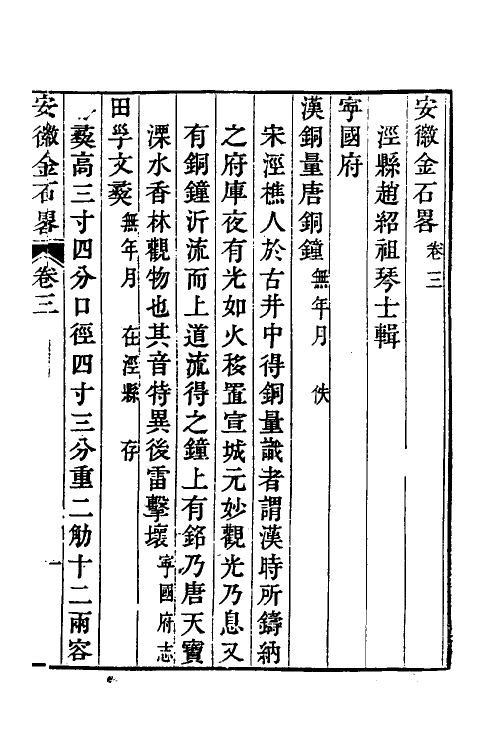 安徽金石畧卷三
涇縣趙紹祖琴士輯
寧國府
漢銅量唐銅鐘無年月 佚
宋涇樵人於古井中得銅量識者謂漢時所鑄納
之府庫夜有光如火移置宣城元妙觀光乃息又
有銅鐘沂流而上道流得之鐘上有銘乃唐天寶
溧水香林觀物也其音特異後雷擊壞寧國府志
田孚文𤼵無年月 在涇縣 存
高三寸四分口徑四寸三分重二觔十二兩容
安徽金石畧 卷三 一